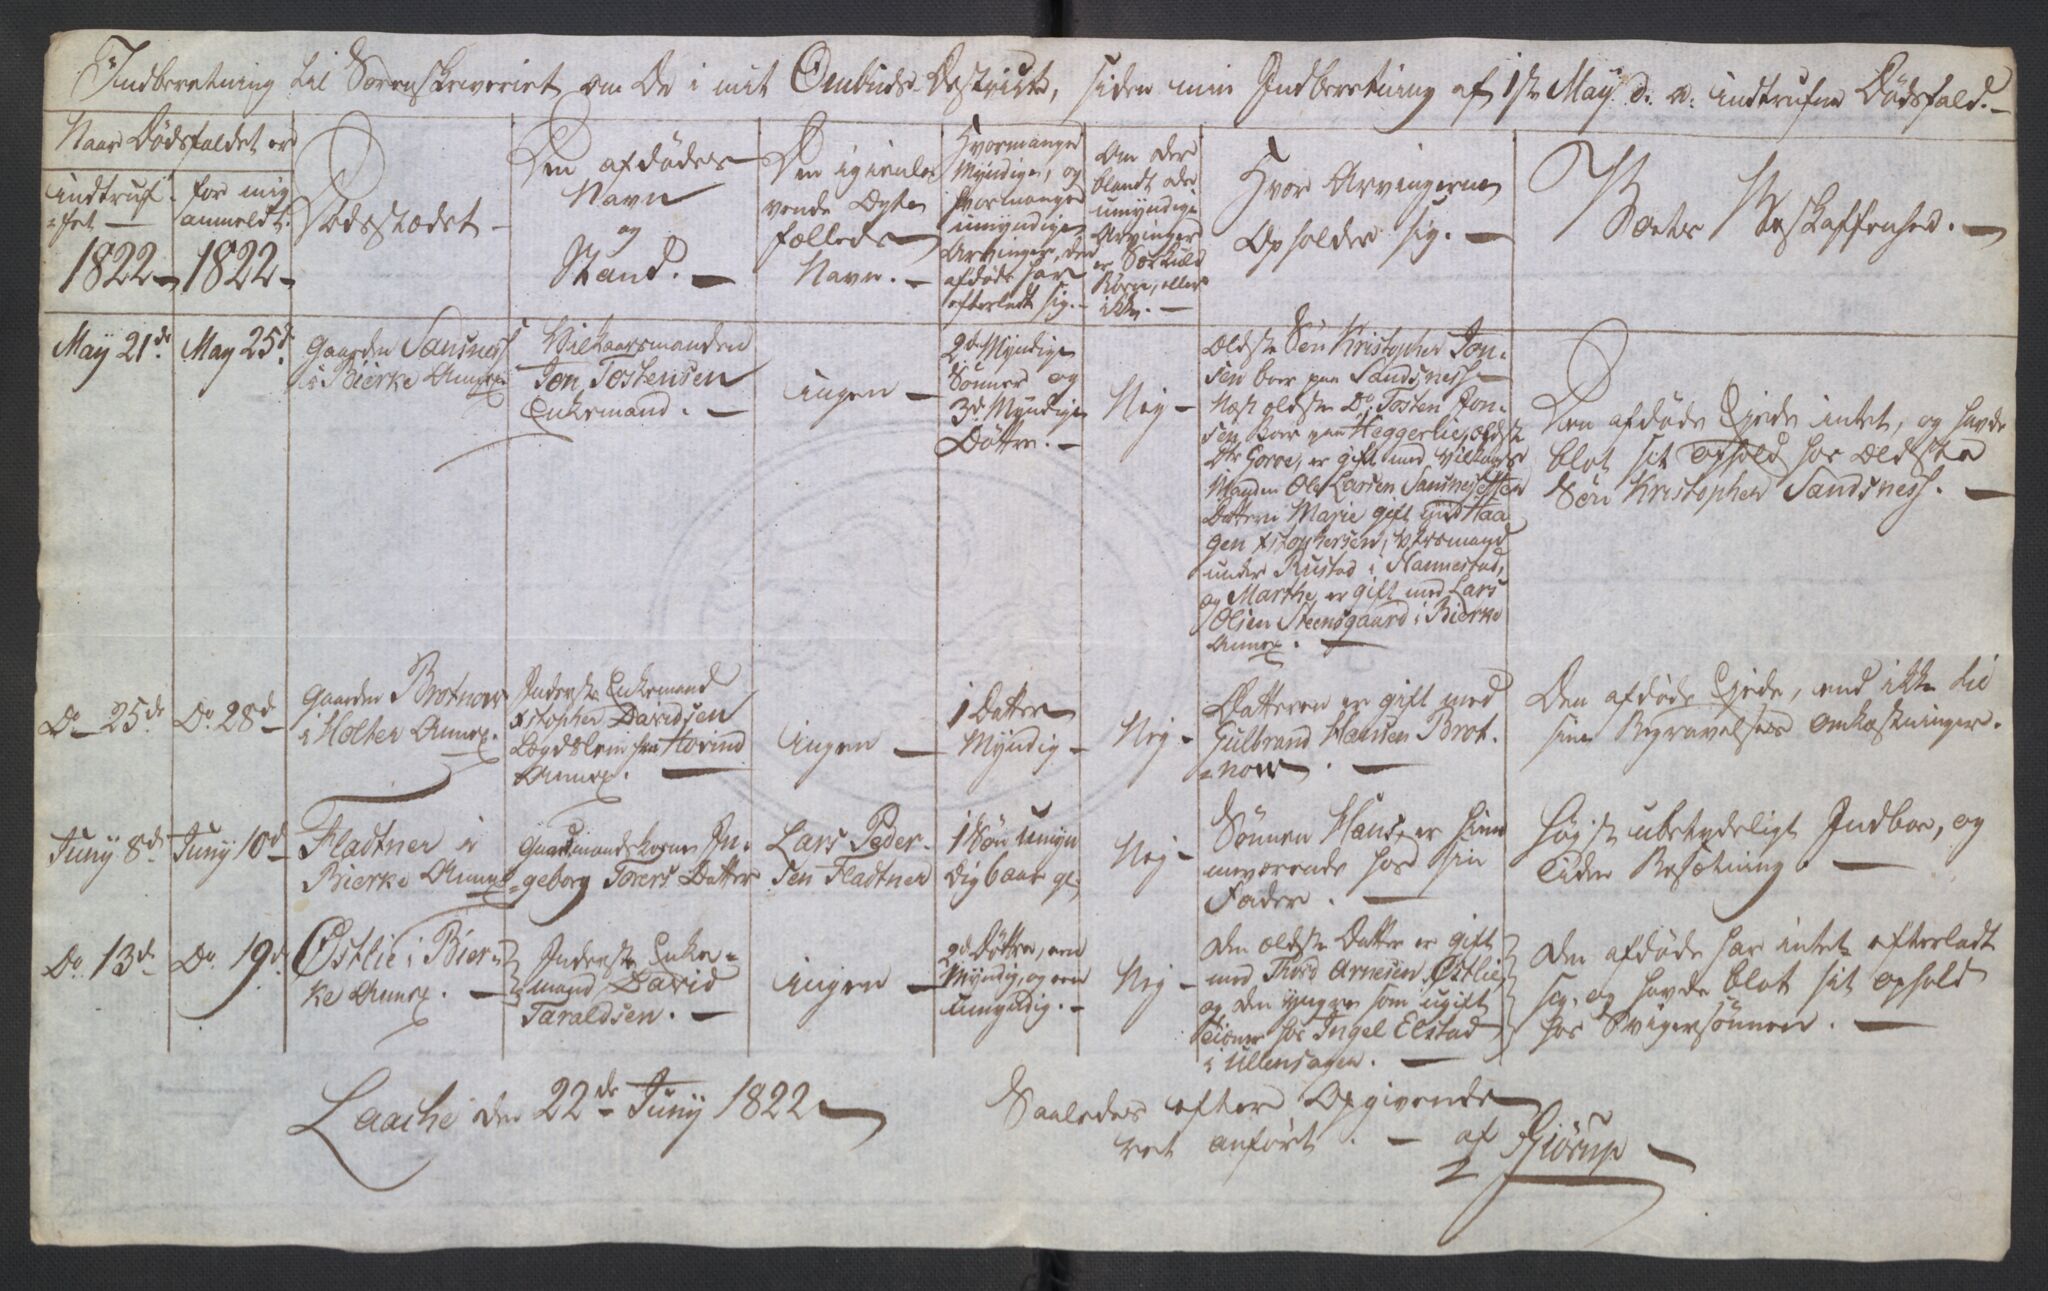 Indberetning til Sorenskriveriet om De i mit Ombuds District, siden min Indberetning af 1ste May d. a. indtrufne Dødsfald. –
Naar Dødsfaldet er
indtruf-
fet –
1822 –
for mig
anmeldt.
1822 –
Dødsstædet –
Den afdødes
Navn
og
Stand. –
Den igienle-
vende Ægte
fælledes
Navn. –
Hvormange
Myndige, og
hvormange
umyndige
Arvinger, den
afdøde har
efterladt sig. –
Om der
blandt de
umyndige
Arvinger
er
Børn, eller
ikke. –
Hvor Arvingerne
Opholder sig. –
Boets Beskaffenhed. –
May 21de
May 25d.
Gaarden Sandsness
i Bierke Annex
Vilkaarsmanden
Jon Tostensen
Enkemand. –
ingen –
2de Myndige
Sønner og
3de Myndige
Døttre. –
Nej –
Ældste Søn Kristopher Jon-
sen boer paa Sandsness –
Næst ældste Do Tosten Jon-
sen, Boer paa Heggerlie, ældste
Dtr Gorve, er gift med Vilkaars
Manden Ole Larsen Sandsness
Datteren Marie gift med Haa-
gen Xstophersen,
under Rustad i Nannestad,
og Marthe, er gift med Lars
Olsen Steensgaard i Bierke
Annex. –
Den afdøde Ejede intet, og havde
blot sit Ophold hos ældste
Søn Kristopher Sandsness. –
Do 25de
Do 28d
Gaarden Brotnow
i Holter Annex.
Inderste Enkemand
Xstopher Davidsen
Lægdslem fra Hovind
Annex. –
ingen –
1 Datter
Myndig –
Nej –
Datteren er gift med
Gulbrand Hansen Brot-
now. –
Den afdøde Ejede, end ikke til
sine Begravelses Omkostninger.
Juny 8de
Juny 10d
Fladtner i
Bierke Annex
Gaardmandskone In-
geborg Torers Datter
Lars Peder-
sen Fladtner
1 Søn umyn
dig 6 aar gl.
Nej –
Sønnen Hans, er hiem
meværende hos sin
Fader. –
Høist ubetydeligt Indboe, og
liden Besætning. –
Do 13de
Do 19de
Østlie i Bier-
ke Annex. –
Inderste Enke-
mand David
Taraldsen. –
ingen –
2de Døttre, een
Myndig, og een
umyndig. –
Nej –
Den ældste Datter er gift
med Thord Arnesen Østlie,
og den yngre som ugift
Tiener hos Ingel Elstad
i Ullensager. –
Den afdøde har intet efterladt
sig, og havde blot sit ophold
hos Svigersønnen. –
Laache den 22de Juny 1822 –
Saaledes efter Opgivende
ret anført. – af Gjörup –